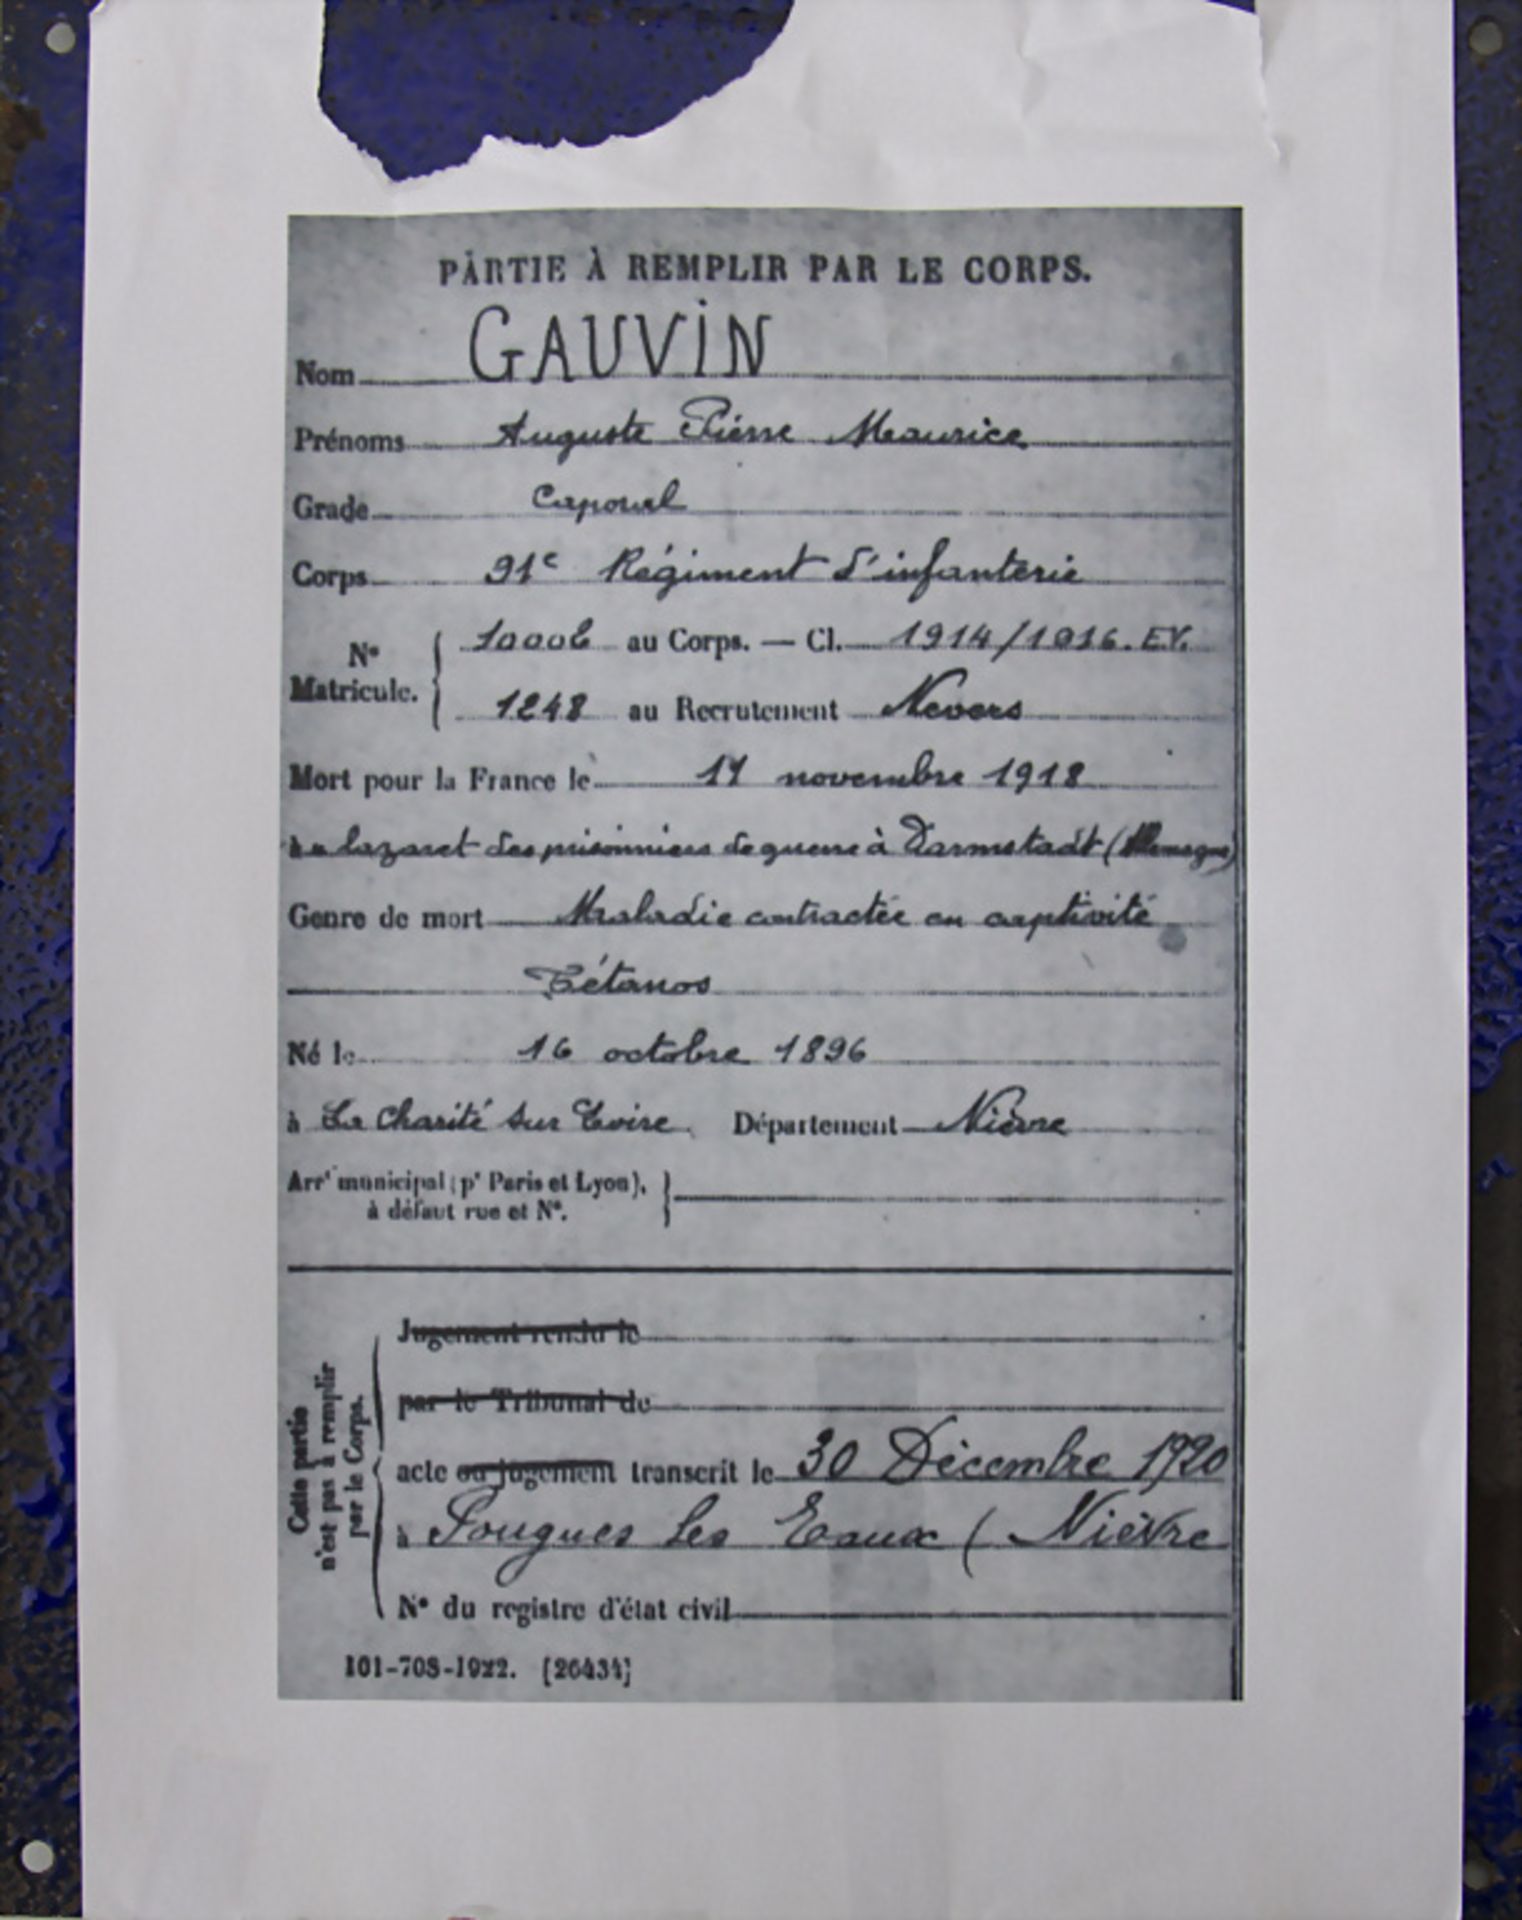 PARTIE À REMPLIR PAR LE CORPS.
Nom GAUVIN
Prénoms Auguste Pierre Maurice
Grade Caporal
Corps 91e Régiment d'infanterie
No Matricule. { 10006 au Corps. — Cl. 1914/1916. EV.
1248 au Recrutement Nevers
Mort pour la France le 11 novembre 1918
au lazaret des prisonniers de guerre à Darmstadt (Allemagne)
Genre de mort Maladie contractée en captivité
Tétanos
Né le 16 octobre 1896
à La Charité sur Loire Département Nièvre
Arrt municipal (pr Paris et Lyon), }
à défaut rue et No.
Cette partie
n'est pas à remplir
par le Corps.
Jugement rendu le
par le Tribunal de
acte ou jugement transcrit le 30 Décembre 1920
à Pougues les Eaux (Nièvre
No du registre d'état civil
101-708-1922. [26434]